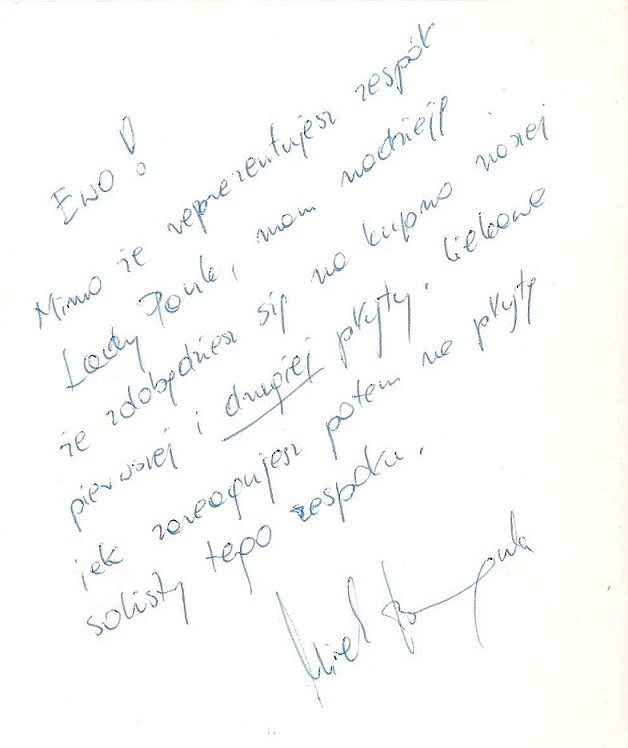 Ewo!
Mimo że reprezentujesz zespół
Lady Pank, mam nadzieję
że zdobędziesz się na kupno naszej
pierwszej i drugiej płyty. Ciekawe
jak zareagujesz potem na płytę
solisty tego zespołu.